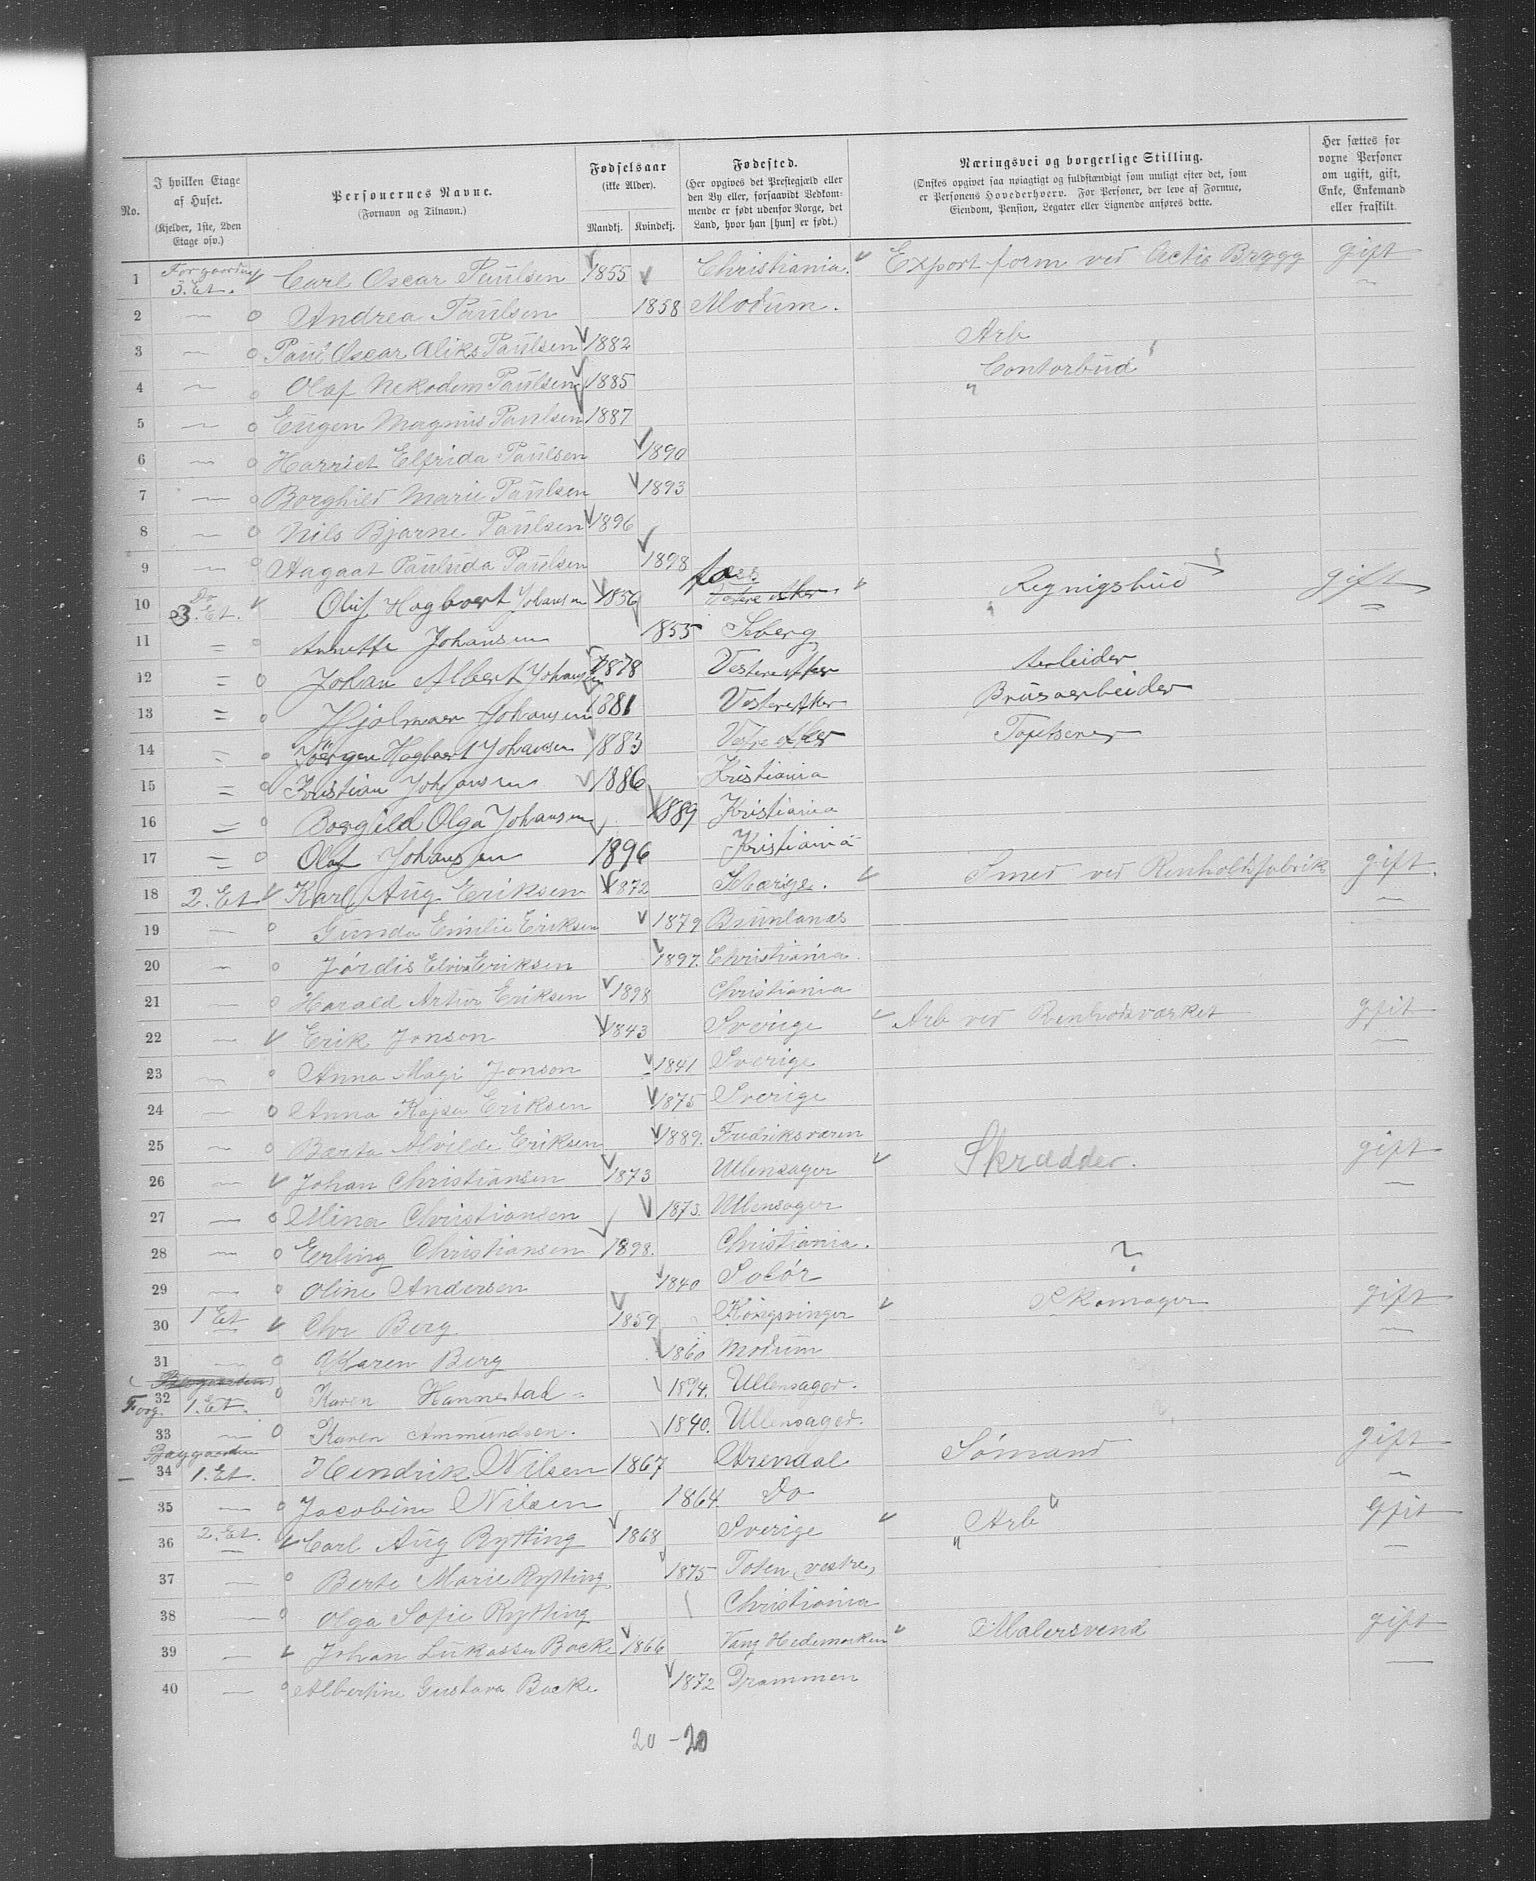 No.
I hvilken Etage af Huset.
(Kjelder, 1ste, 2den Etage osv.)
Personernes Navne.
(Fornavn og Tilnavn.)
Fødselsaar
(ikke Alder).
Mandkj. Kvindekj.
Fødested.
(Her opgives det Prestegjæld eller den By eller, forsaavidt Vedkommende er født udenfor Norge, det Land, hvor han [hun] er født.)
Næringsvei og borgerlige Stilling.
(Ønskes opgivet saa nøiagtigt og fuldstændigt som muligt efter det, som er Personens Hovederhverv. For Personer, der leve af Formue, Eiendom, Pension, Legater eller Lignende anføres dette.
Her sættes for voxne Personer om ugift, gift, Enke, Enkemand eller fraskilt.
1 Forgaarding 3. Et. Carl Oscar Paulsen 1855 Christiania. Export form ved Actie Brygg gift
2 — Andrea Paulsen 1858 Modum. —
3 — Paul Oscar Aliks Paulsen 1882 Arb
4 — Olaf Nekodem Paulsen 1885 " Contorbud
5 — Eugen Magnus Paulsen 1887
6 — Harriet Elfrida Paulsen 1890
7 — Borghild Marie Paulsen 1893
8 — Nils Bjarne Paulsen 1896
9 — Aagaat Paulida Paulsen 1898
10 Do 3. Et. Oluf Hagbart Johansen 1856 Vestre Aker Regnigsbud gift
11 = Annette Johansen 1855 Seberg =
12 = Johan Albert Johansen 1878 Vestre Aker Arbeider
13 = Hjalmar Johansen 1881 Vestre Aker Brusarbeider
14 = Jørgen Hagbart Johansen 1883 Vestre Aker Tapetserer
15 = Kristian Johansen 1886 Kristiania
16 = Borgild Olga Johansen 1889 Kristiania
17 = Olaf Johansen 1896 Kristiania
18 2. Et Karl Aug Eriksen 1872 Sverige. Smed ved Renholdsfabrik gift.
19 — Gunda Emilie Eriksen 1879 Brunlanæs —
20 — Jórdis Elvira Eriksen 1897. Christiania.
21 — Harald Artur Eriksen 1898 Christiania
22 — Erik Jonson 1843 Sverige Arb ved Renholdsværket gfit
23 — Anna Magi Jonson 1841 Sverige —
24 — Anna Kajsa Eriksen 1875 Sverige
25 — Bærta Alvilde Eriksen 1889. Fredriksværen
26 — Johan Christiansen 1873 Ullensager Skrædder. gift
27 — Mina Christiansen 1873. Ullensager —
28 — Erling Christiansen 1898. Christiania.
29 — Oline Andersen 1840 Solór ?
30 1 Et Chr Berg 1859 Kongsvinger Skomager gift
31 — Karen Berg 1860 Modum —
32 Forg. 1. Et. Karen Hannestad 1874. Ullensager.
33 — Karen Ammundsen. 1840. Ullensager.
34 Baggaarden 1. Et. Hendrik Nilsen 1867 Arendal Sómand gift
35 — Jacobine Nilsen 1864. Do —
36 2. Et. Carl Aug Rytting 1868 Sverige " Arb " gfit
37 — Berte Marie Rytting 1875 Toten, vestre, —
38 — Olga Sofie Rytting Christiania
39 — Johan Lukassen Backe 1866 Vang Hedemarken Malersvend gift
40 — Albertine Gustava Backe 1872 Drammen —
20 - 20